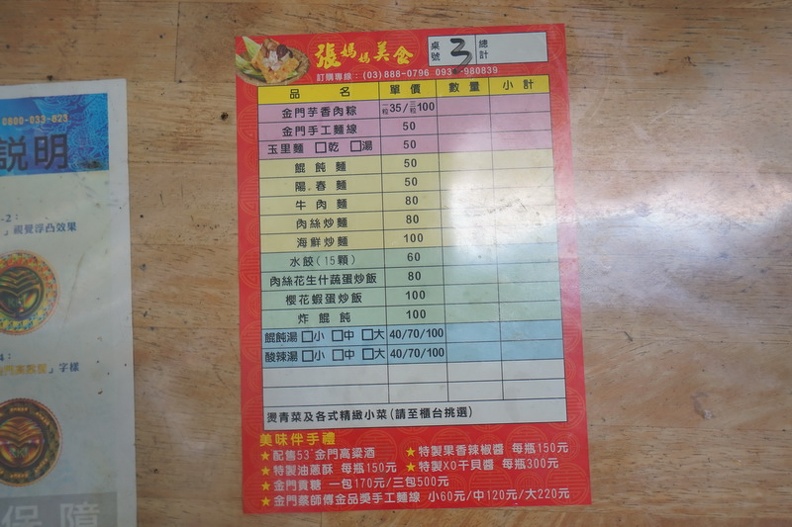 0800-033-823
說明
-2：
」視覺浮凸效果
4：
」字樣
保障
張媽媽美食
桌號 3 總計
訂購專線：(03)888-0796 093 -980839
品名 單價 數量 小計
金門芋香肉粽 一粒35/三粒100
金門手工麵線 50
玉里麵 □乾 □湯 50
餛飩麵 50
陽春麵 50
牛肉麵 80
肉絲炒麵 80
海鮮炒麵 100
水餃(15顆) 60
肉絲花生什蔬蛋炒飯 80
櫻花蝦蛋炒飯 100
炸餛飩 100
餛飩湯 □小 □中 □大 40/70/100
酸辣湯 □小 □中 □大 40/70/100
燙青菜及各式精緻小菜(請至櫃台挑選)
美味伴手禮
★配售53°金門高粱酒 ★特製果香辣椒醬 每瓶150元
★特製油蔥酥 每瓶150元 ★特製XO干貝醬 每瓶300元
★金門貢糖 一包170元/三包500元
★金門蔡師傅金品獎手工麵線 小60元/中120元/大220元